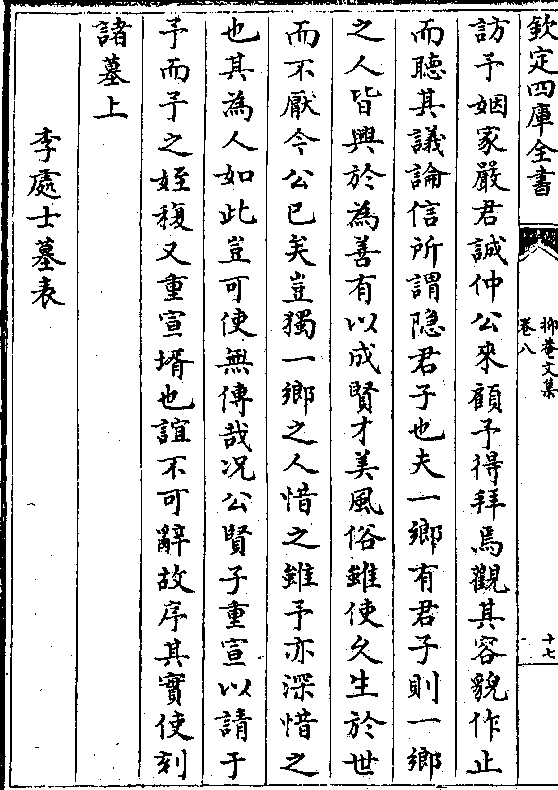 欽定四庫全書
抑菴文集
卷八
十七
訪予姻家嚴君誠仲公來顧予得拜焉觀其容貌作止
而聽其議論信所謂隐君子也夫一鄉有君子則一鄉
之人皆興於為善有以成賢才美風俗雖使久生於世
而不厭今公已矣豈獨一鄉之人惜之雖予亦深惜之
也其為人如此豈可使無傳哉况公賢子重宣以請于
予而予之姪𥡴又重宣壻也誼不可辭故序其實使刻
諸墓上
李處士墓表